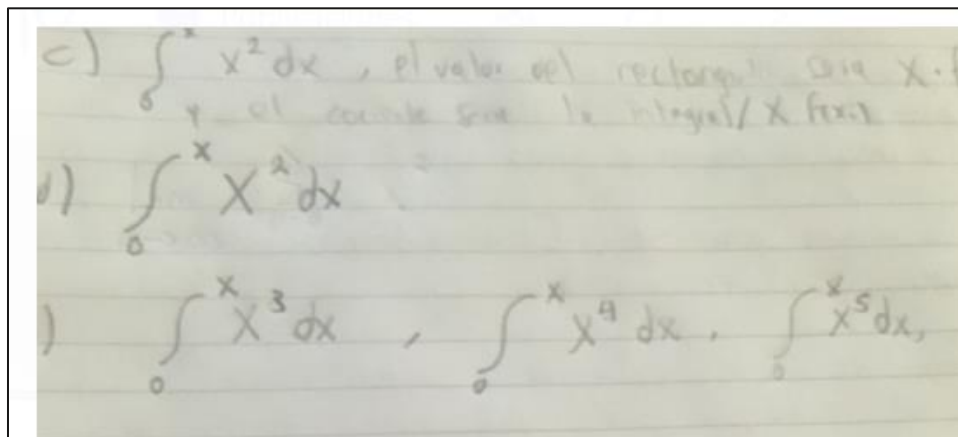 c) ∫₀ x² dx, el valor del rectang seria X·f
y el cociente seria la integral / X f(x)
d) ∫₀ˣ X² dx
) ∫₀ˣ X³ dx, ∫₀ˣ X⁴ dx, ∫₀ˣ X⁵ dx,